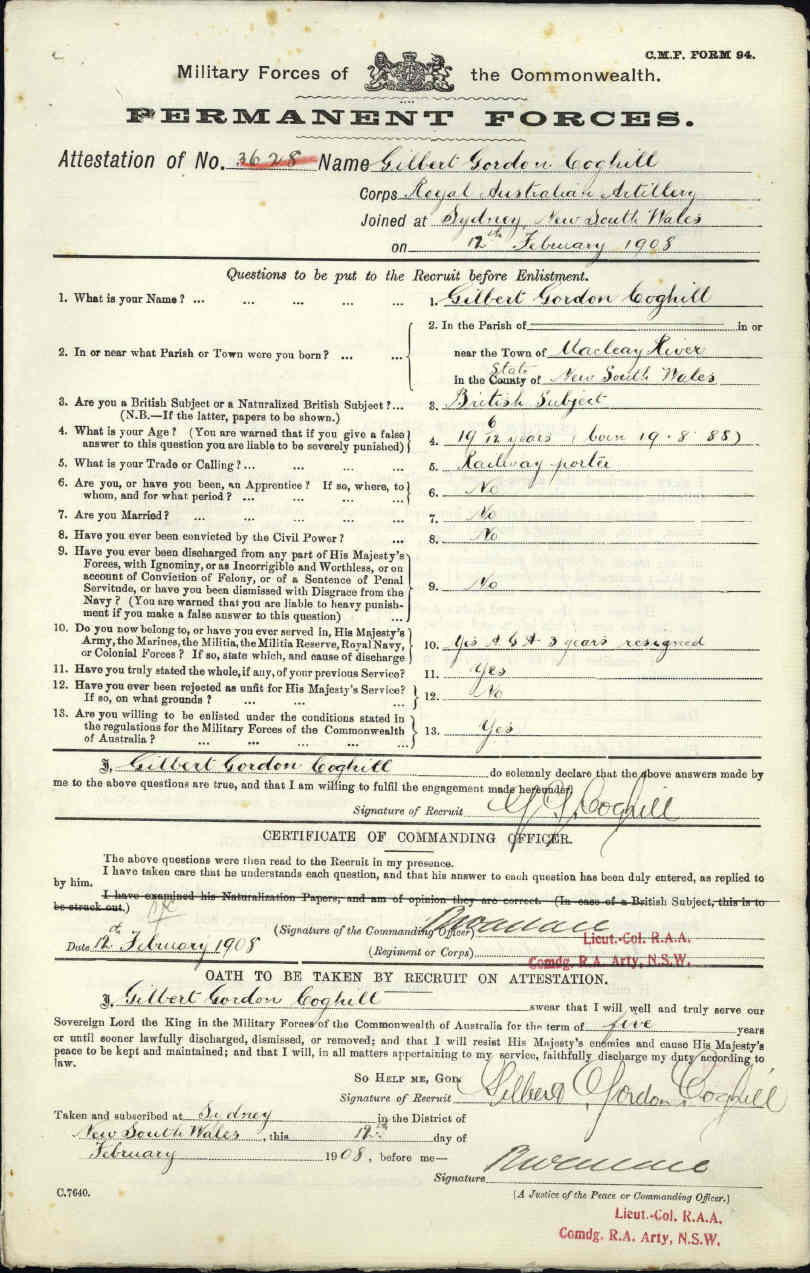 C.M.F. FORM 94.
Military Forces of the Commonwealth.
PERMANENT FORCES.
Attestation of No. 3628 Name Gilbert Gordon Coghill
Corps Royal Australian Artillery
Joined at Sydney, New South Wales
on 12th February 1908
Questions to be put to the Recruit before Enlistment.
1. What is your Name? ... ... ... ... ... 1. Gilbert Gordon Coghill
2. In or near what Parish or Town were you born? ... ... 2. In the Parish of in or
near the Town of Macleay River
in the County State of New South Wales
3. Are you a British Subject or a Naturalized British Subject?... 3. British Subject
(N.B.—If the latter, papers to be shown.)
4. What is your Age? (You are warned that if you give a false
answer to this question you are liable to be severely punished) 4. 19 6/12 years (born 19.8.88)
5. What is your Trade or Calling?... ... ... ... 5. Railway porter
6. Are you, or have you been, an Apprentice? If so, where, to
whom, and for what period? ... ... ... ... 6. No
7. Are you Married? ... ... ... ... ... 7. No
8. Have you ever been convicted by the Civil Power? ... 8. No
9. Have you ever been discharged from any part of His Majesty's
Forces, with Ignominy, or as Incorrigible and Worthless, or on
account of Conviction of Felony, or of a Sentence of Penal
Servitude, or have you been dismissed with Disgrace from the
Navy? (You are warned that you are liable to heavy punish-
ment if you make a false answer to this question) ... 9. No
10. Do you now belong to, or have you ever served in, His Majesty's
Army, the Marines, the Militia, the Militia Reserve, Royal Navy,
or Colonial Forces? If so, state which, and cause of discharge 10. Yes A.G.A 3 years resigned
11. Have you truly stated the whole, if any, of your previous Service? 11. Yes
12. Have you ever been rejected as unfit for His Majesty's Service?
If so, on what grounds? ... ... ... 12. No
13. Are you willing to be enlisted under the conditions stated in
the regulations for the Military Forces of the Commonwealth
of Australia? ... ... ... ... ... 13. Yes
I, Gilbert Gordon Coghill do solemnly declare that the above answers made by
me to the above questions are true, and that I am willing to fulfil the engagement made hereunder.
Signature of Recruit G G Coghill
CERTIFICATE OF COMMANDING OFFICER.
The above questions were then read to the Recruit in my presence.
I have taken care that he understands each question, and that his answer to each question has been duly entered, as replied to
by him.
I have examined his Naturalization Papers, and am of opinion they are correct. (In case of a British Subject, this is to
be struck out.)
(Signature of the Commanding Officer)
Lieut.-Col. R.A.A.
Date 12th February 1908 (Regiment or Corps)
Comdg. R.A. Arty, N.S.W.
OATH TO BE TAKEN BY RECRUIT ON ATTESTATION.
I, Gilbert Gordon Coghill swear that I will well and truly serve our
Sovereign Lord the King in the Military Forces of the Commonwealth of Australia for the term of five years
or until sooner lawfully discharged, dismissed, or removed; and that I will resist His Majesty's enemies and cause His Majesty's
peace to be kept and maintained; and that I will, in all matters appertaining to my service, faithfully discharge my duty according to
law.
SO HELP ME, GOD.
Signature of Recruit Gilbert Gordon Coghill
Taken and subscribed at Sydney in the District of
New South Wales, this 12th day of
February 1908, before me—
Signature
C.7640.
(A Justice of the Peace or Commanding Officer.)
Lieut.-Col. R.A.A.
Comdg. R.A. Arty, N.S.W.